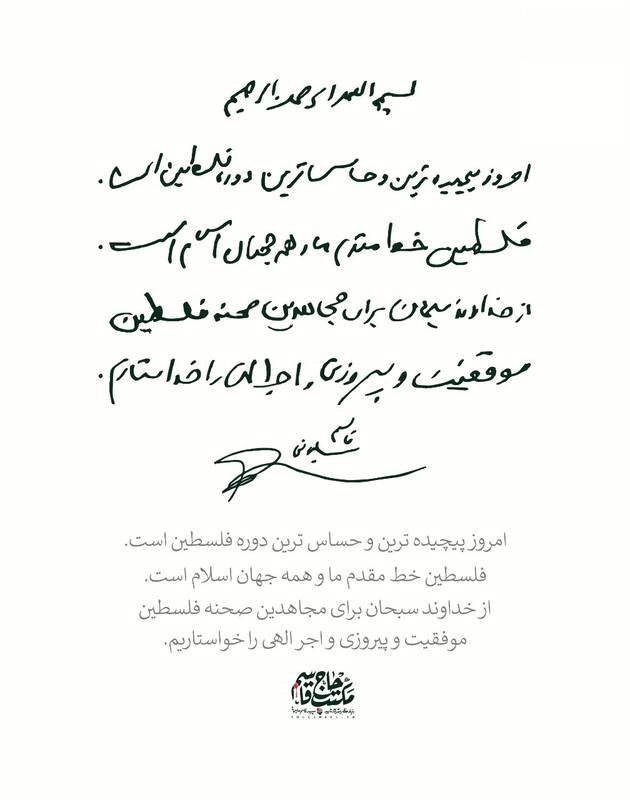 بسم الله الرحمن الرحیم
امروز پیچیده ترین و حساس ترین دوره فلسطین است.
فلسطین خط مقدم ما و همه جهان اسلام است.
از خداوند سبحان برای مجاهدین صحنه فلسطین
موفقیت و پیروزی و اجر الهی را خواستارم.
قاسم
سلیمانی
امروز پیچیده ترین و حساس ترین دوره فلسطین است.
فلسطین خط مقدم ما و همه جهان اسلام است.
از خداوند سبحان برای مجاهدین صحنه فلسطین
موفقیت و پیروزی و اجر الهی را خواستاریم.
مکتب حاج قاسم